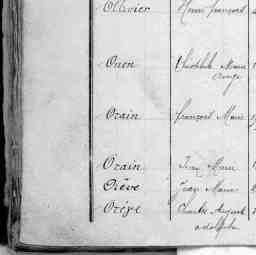 Ollivier Henri françois
Onen Théophile Marie
Orain françois Marie
Orain Jean Marie
Orève Jean Marie
Orève Charles August
adolphe